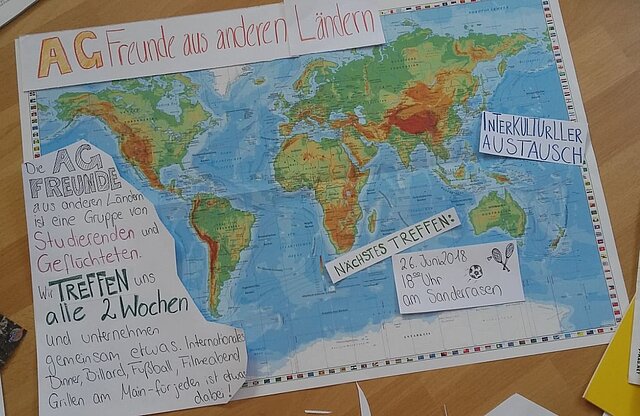 AG Freunde aus anderen Ländern
Die AG
FREUNDE
aus anderen Ländern
ist eine Gruppe von
Studierenden und
Geflüchteten.
Wir TREFFEN uns
alle 2 Wochen
und unternehmen
gemeinsam etwas. Internationales
Dinner, Billard, Fußball, Filmeabend
Grillen am Main-für jeden ist etwas
dabei!
INTERKULTURLLER
AUSTAUSCH
NÄCHSTES TREFFEN:
26. Juni 2018
18⁰⁰ Uhr
am Sanderrasen